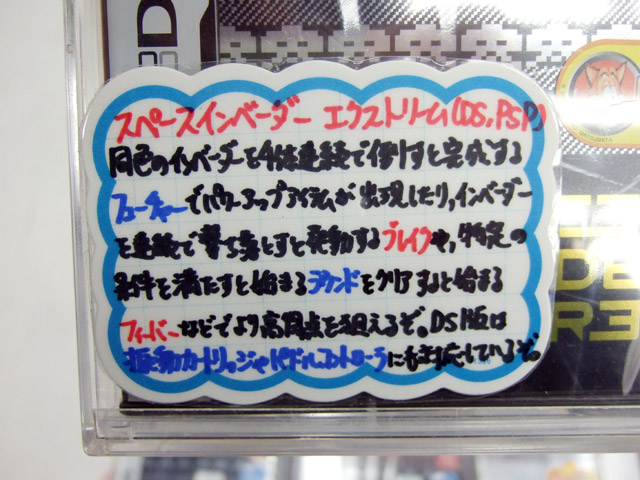 スペースインベーダー エクストリーム(DS,PSP)
同色のインベーダーを4体連続で倒すと完成する
フィーチャーでパワーアップアイテムが出現したり、インベーダー
を連続で撃ち落とすと発動するブレイクや、特定の
条件を満たすと始まるラウンドをクリアすると始まる
フィーバーなどでより高得点を狙えるぞ。DS版は
振動カートリッジやパドルコントローラにも対応しているぞ。
DE
R3